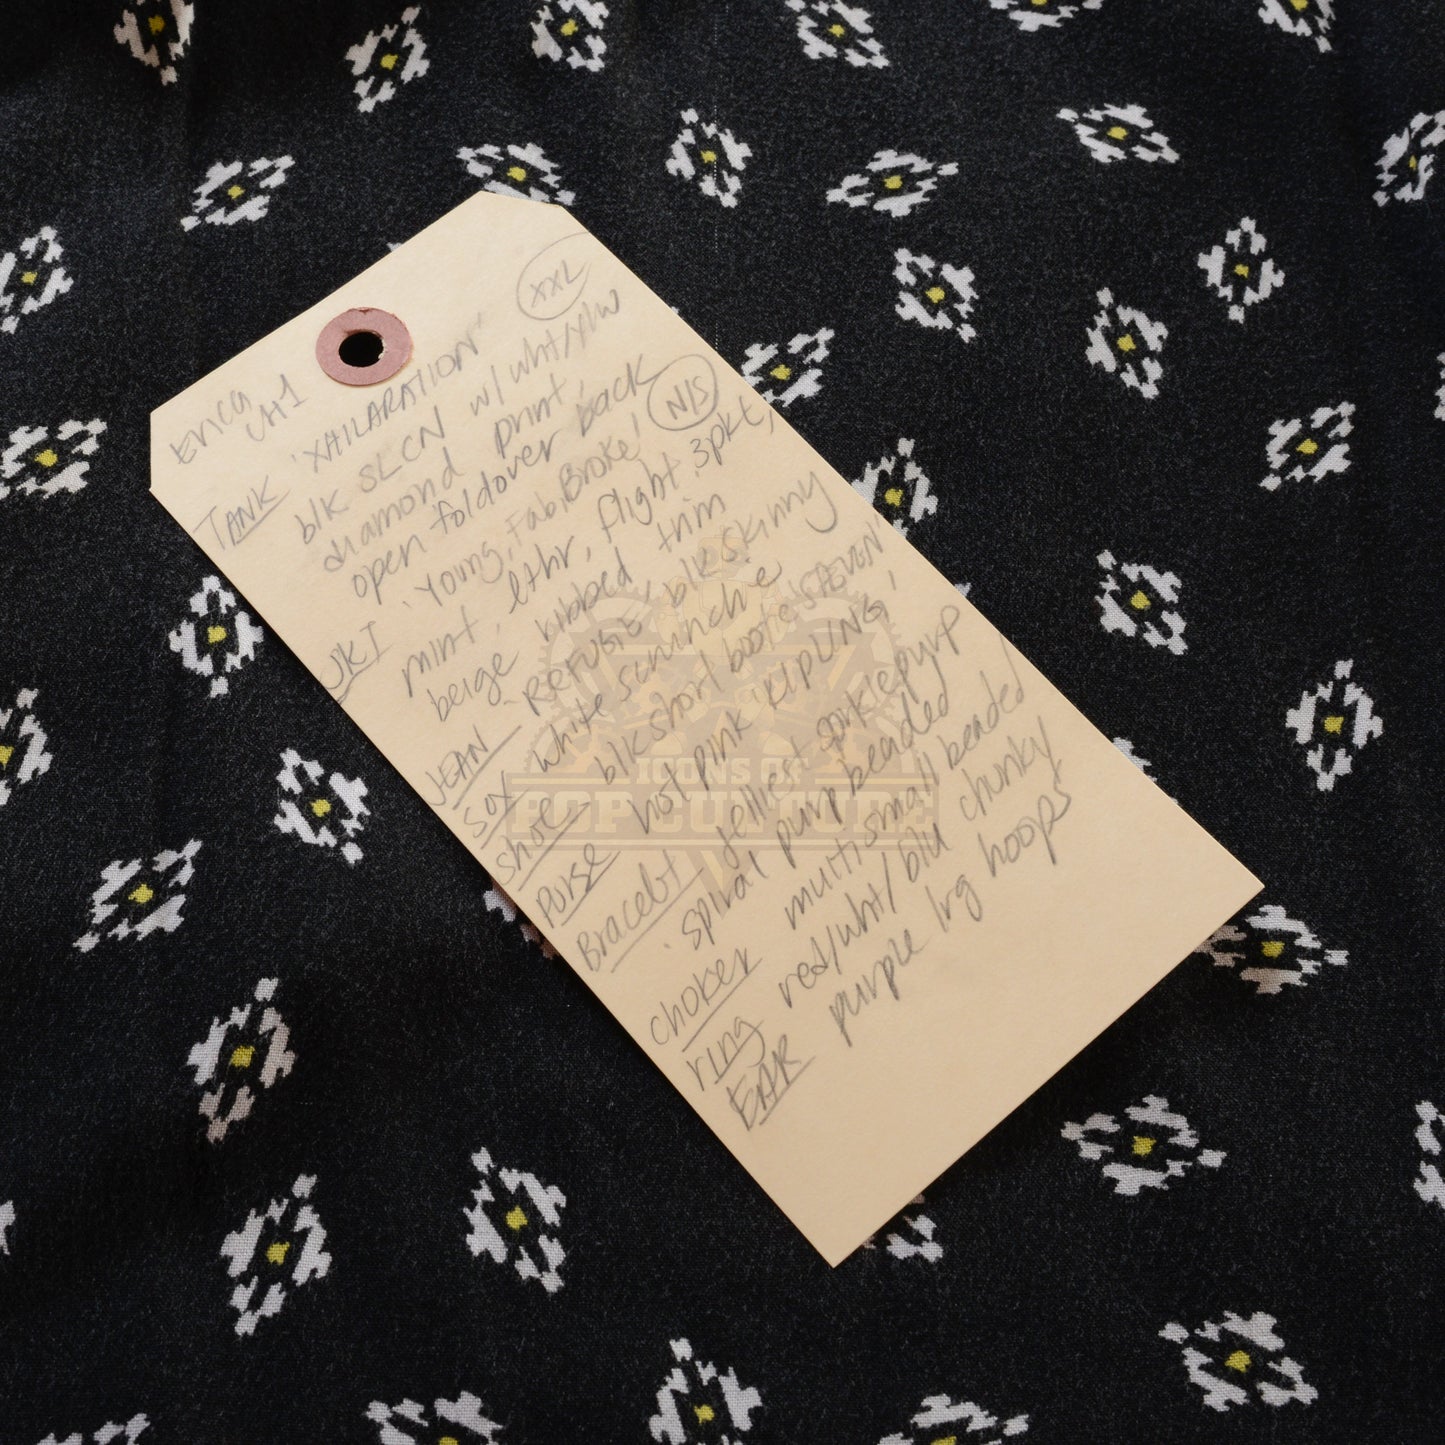 Erica
CH1
XXL
TANK 'XHILARATION'
blk SLCN w/ wht/ylw
diamond print,
open foldover back
JKT 'Young, Fab, Broke' N/S
mint, lthr, flight, 3pkt,
beige ribbed trim
JEAN - REFUGE, blk skinny
SOX white scrunchie
shoe - blk short bootie 'STEVEN'
PURSE hot pink 'KIPLING'
Bracelet jellies + sparkle purp
'spiral purp beaded
choker multi small beaded
ring red/wht/blu chunky
EAR purple lrg hoops
ICONS OF
POP CULTURE